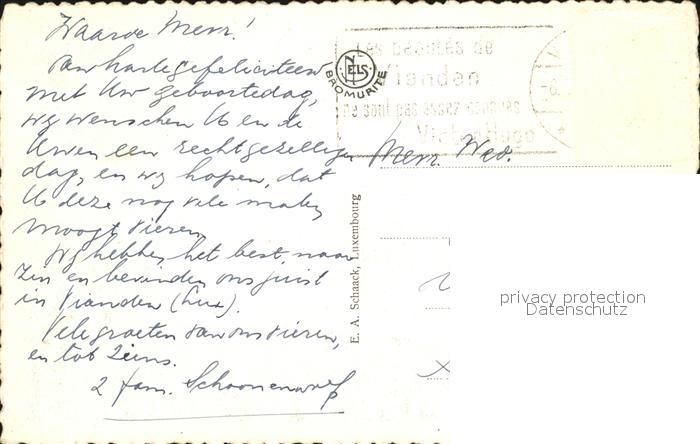 Waarde Mevr!
Van harte gefeliciteerd
met Uw geboortedag,
wy wenschen U en de
Uwen een recht gezelligen
dag, en wy hopen, dat
U deze nog vele malen
moogt vieren.
Wy hebben het best naar
Zin en bevinden ons juist
in Vianden (Lux).
Vele groeten van ons vieren,
en tot ziens.
2 fam.
Les beautés de
Vianden
ne sont pas assez connues
Victor Hugo
ELS
BROMURITE
Mevr. Wed.
E. A. Schaack, Luxembourg
privacy protection
Datenschutz